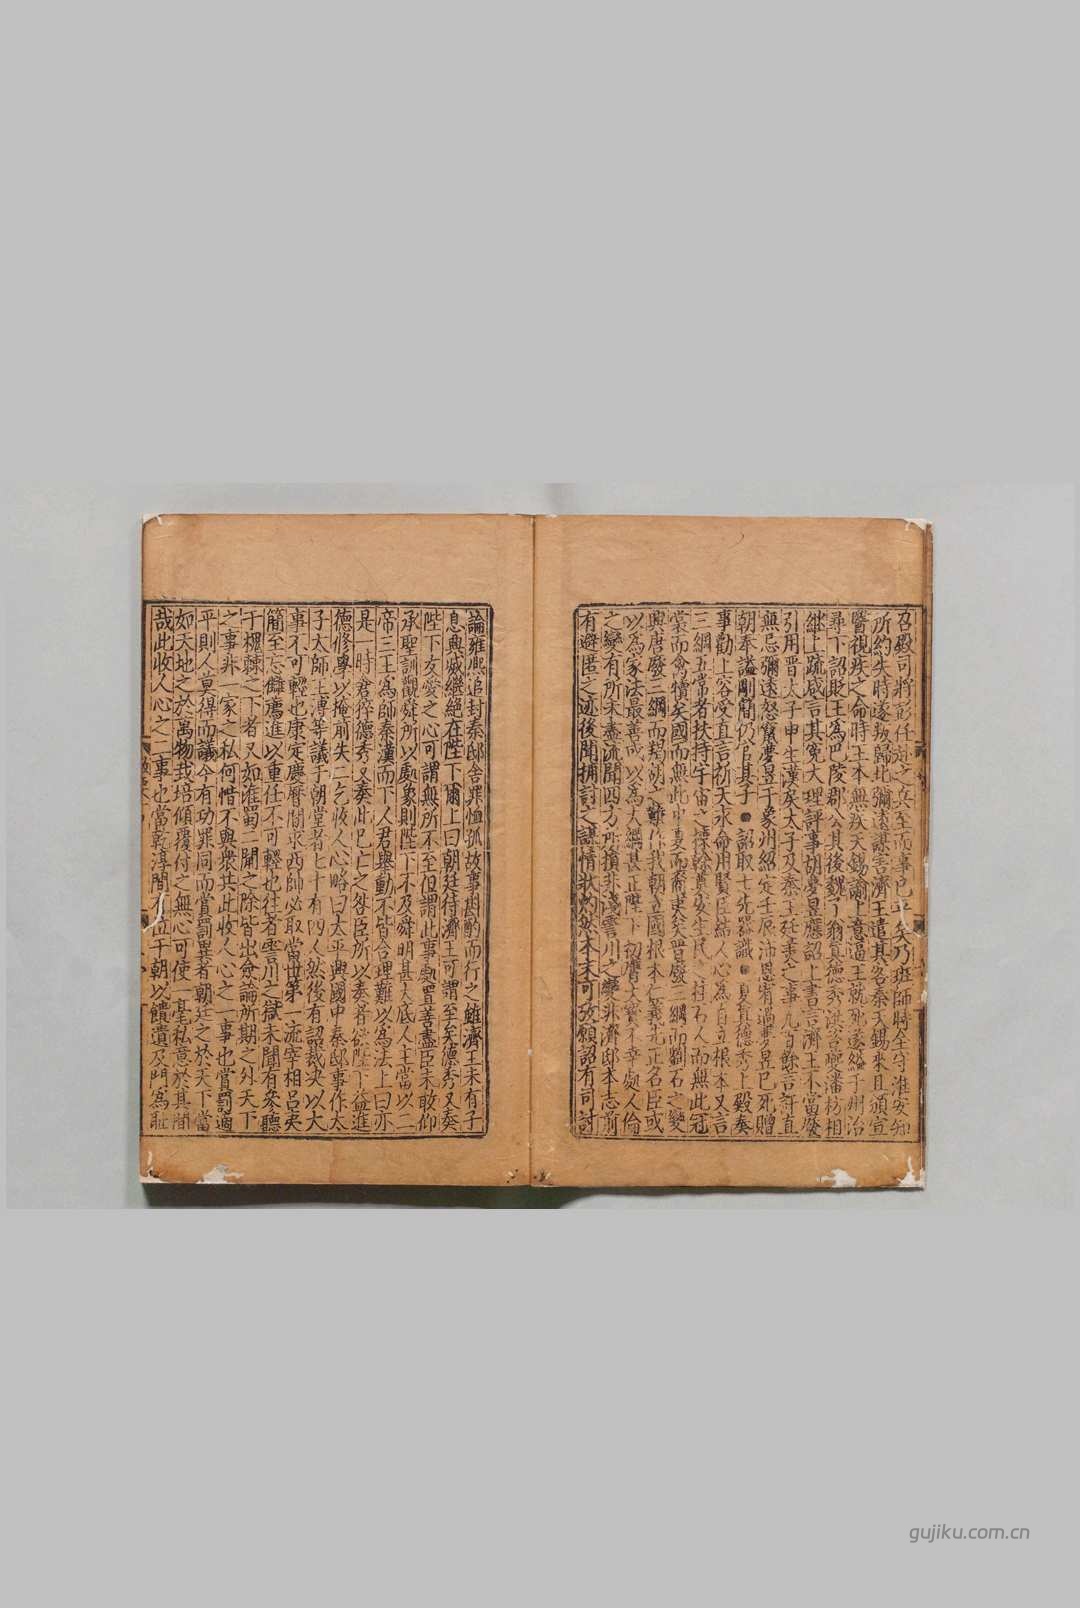 召殿司將彭任討之兵至而事已平矣乃班師時全守淮安知
所約失時遂叛歸北彌遠謀害濟王遣其客秦天錫來且頒宣
醫視疾之命時王本無疾天錫諭上意逼王就死遂縊于州治
尋下詔貶王爲巴陵郡公其後魏了翁真德秀洪咨夔潘枋相
繼上疏咸言其冤大理評事胡夢昱應詔上書言濟王不當廢
引用晉太子申生漢戾太子及秦王廷美之事凡百餘言訐直
無忌彌遠怒竄夢昱于象州紹定壬辰沛恩宥過夢昱已死贈
朝奉謚剛簡仍官其子 詔取七先器識 夏真德秀上殿奏
事勸上容受直言祈天永命用賢臣結人心爲自立根本又言
三綱五常者扶持宇宙之棟榦奠安生民之柱石人而無此冠
裳而禽犢矣國而無此中夏而裔夷矣晉廢三綱而劉石之變
興唐廢三綱而羯胡之難作我朝立國根本仁義先正名臣或
以爲家法最善或以爲大綱甚正陛下初膺大寶不幸處人倫
之變有所未盡流聞四方所損非淺霅川之變非濟邸本志前
有避匿之迹後聞捕討之謀情狀灼然本末可攷願詔有司討
論雍熙追封秦邸舍罪恤孤故事斟酌而行之雖濟王未有子
息興滅繼絕在陛下爾上曰朝廷待濟王可謂至矣德秀又奏
陛下友愛之心可謂無所不至但謂此事處置盡善臣未敢仰
承聖訓觀舜所以處象則陛下不及舜明甚大底人主當以二
帝三王爲師秦漢而下人君舉動不皆合理難以爲法上曰亦
是一時倉猝德秀又奏此已往之咎臣所以奏者欲陛下益進
德修學以掩前失二乞收人心略曰太平興國中秦邸事作太
子太師王溥等議于朝堂者七十有四人然後有詔裁決以大
事不可輕也康定慶曆間求西帥必取當世第一流宰相呂夷
簡至忘讎薦進以重任不可輕也往者霅川之獄未聞有參聽
于槐棘之下者又如淮蜀二閫之除皆出僉論所期之外天下
之事非一家之私何惜不與衆共此收人心之一事也當罰適
平則人莫得而議今有功罪同而賞罰異者朝廷之於天下當
如天地之於萬物栽培傾覆付之無心可使一毫私意於其間
哉此收人心之二事也當乾淳間有位于朝以饋遺及門爲恥
gujiku.com.cn